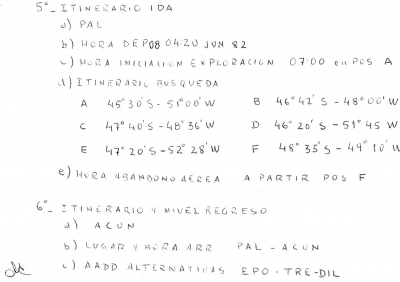 5°- ITINERARIO IDA
a) PAL
b) HORA DEP 08 04:20 JUN 82
c) HORA INICIACION EXPLORACION 07:00 en POS A
d) ITINERARIO BUSQUEDA
A 45°30'S - 51°00'W B 46°42'S - 48°00'W
C 47°40'S - 48°36'W D 46°20'S - 51°45 W
E 47°20'S - 52°28'W F 48°35'S - 49°10'W
e) HORA ABANDONO AEREA A PARTIR POS F
6°- ITINERARIO Y NIVEL REGRESO
a) ACUN
b) LUGAR Y HORA ARR PAL - ACUN
c) AADD ALTERNATIVAS EPO - TRE - DIL